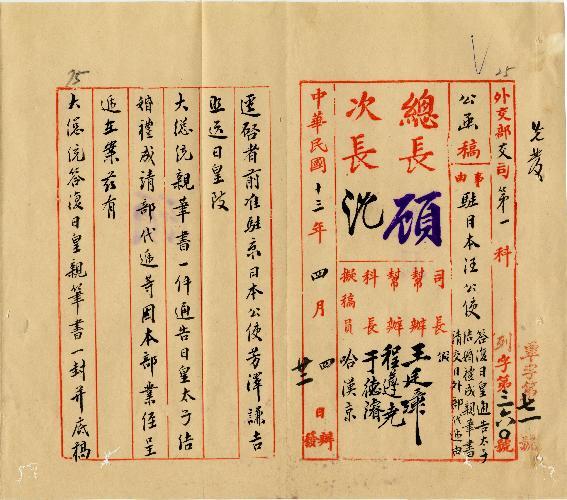 先發
25
外交部交際司第一科 列字第三二六〇號
章字第七一號
公函稿
事由 駐日本汪公使
答復日皇通告太子
結婚禮成親華書
請交日外部代遞由
總長 顧
次長 沈
司長 假
幫辦 王廷璋
幫辦 程遵堯
科長 于德濬
擬稿員 哈漢京
中華民國十三年四月廿四日辦發
75
逕啓者前准駐京日本公使芳澤謙吉
照送日皇致
大總統親華書一件通告日皇太子結
婚禮成請部代遞等因本部業經呈
遞在案茲有
大總統答復日皇親筆書一封并底稿